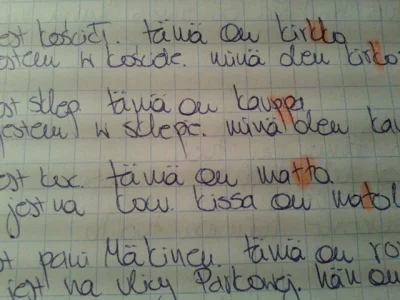 est kościół. tämä on kirkko
estem w kościele. minä olen kirko
st sklep. tämä on kauppa.
jestem w sklepie. minä olen kau
est koc. tämä on matto.
jest na koc. kissa on matol
st pani Mäkinen. tämä on ro
jest na ulicy Parkowej. hän on